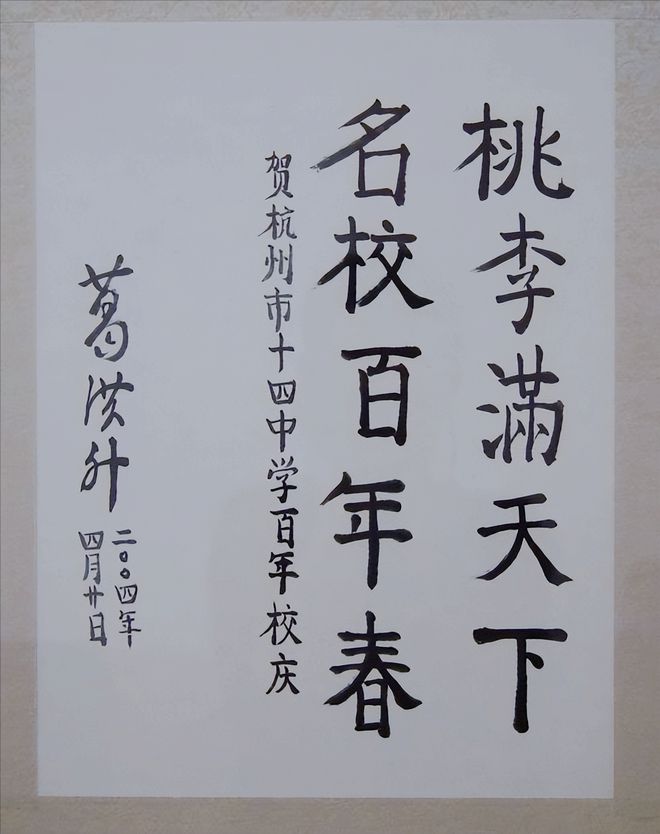 桃李满天下
名校百年春
贺杭州市十四中学百年校庆
葛洪升
二〇〇四年
四月廿日